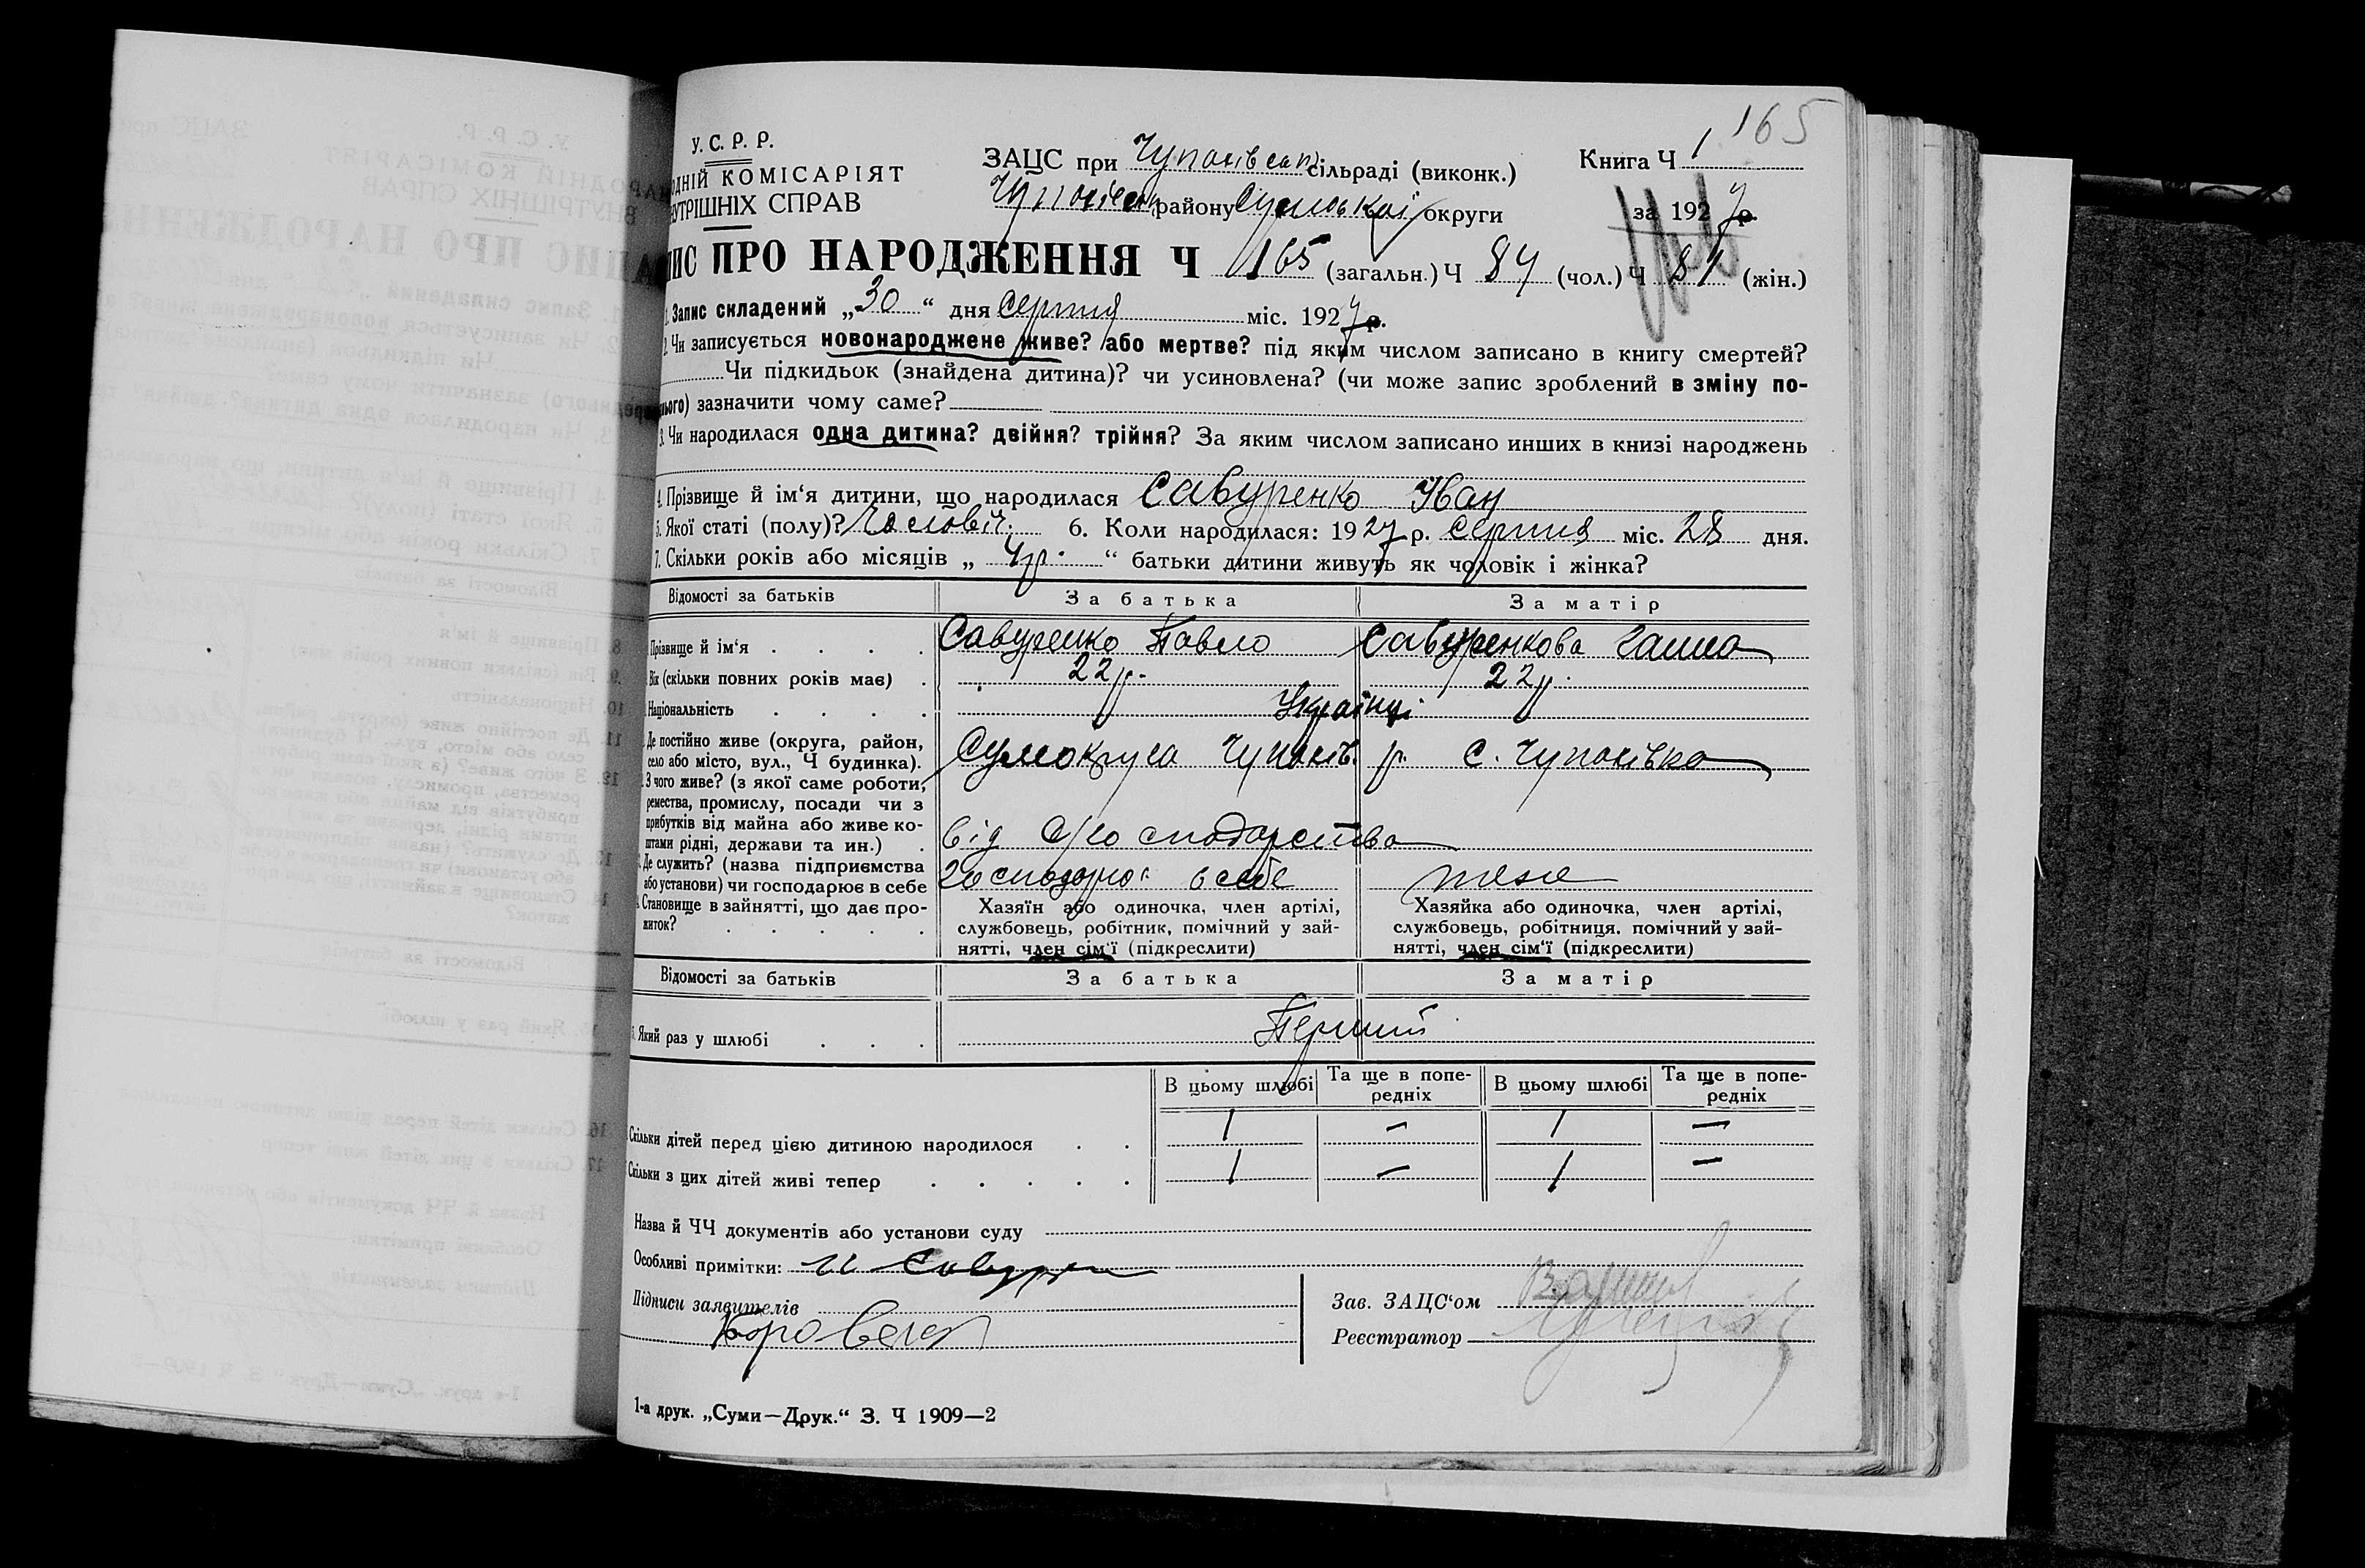 165
У. С. Р. Р.
ОДНІЙ КОМІСАРІЯТ
УТРІШНІХ СПРАВ
ЗАЦС при Чупахівськ. сільраді (виконк.)
Чупахівськ. району Сумської округи
Книга Ч 1
за 1927 р.
ИС ПРО НАРОДЖЕННЯ Ч 165 (загальн.) Ч 84 (чол.) Ч 81 (жін.)
1. Запис складений „30“ дня серпня міс. 1927 р.
2. Чи записується новонароджене живе? або мертве? під яким числом записано в книгу смертей?
Чи підкидьок (знайдена дитина)? чи усиновлена? (чи може запис зроблений в зміну по-
нього) зазначити чому саме?
3. Чи народилася одна дитина? двійня? трійня? За яким числом записано инших в книзі народжень
4. Прізвище й ім‘я дитини, що народилася Савуренко Іван
5. Якої статі (полу)? Чоловіч. 6. Коли народилася: 1927 р. серпня міс. 28 дня.
7. Скільки років або місяців „ 4 р. “ батьки дитини живуть як чоловік і жінка?
Відомості за батьків За батька За матір
Прізвище й ім‘я Савуренко Павло Савуренкова Ганна
Вік (скільки повних років має) 22 р. 22 р.
Національність Українці
Де постійно живе (округа, район,
село або місто, вул., Ч будинка). Сумокруга Чупахів. р. с. Чупахівка
З чого живе? (з якої саме роботи,
ремества, промислу, посади чи з
прибутків від майна або живе ко-
штами рідні, держави та ин.) від с/господарства
Де служить? (назва підприємства
або установи) чи господарює в себе Господарює в себе теж
Становище в зайнятті, що дає про-
житок?
Хазяїн або одиночка, член артілі,
службовець, робітник, помічний у зай-
нятті, член сім‘ї (підкреслити)
Хазяйка або одиночка, член артілі,
службовець, робітниця, помічний у зай-
нятті, член сім‘ї (підкреслити)
Відомості за батьків За батька За матір
Який раз у шлюбі Перший
В цьому шлюбі Та ще в попе-
редніх В цьому шлюбі Та ще в попе-
редніх
Скільки дітей перед цією дитиною народилося 1 – 1 –
Скільки з цих дітей живі тепер 1 – 1 –
Назва й ЧЧ документів або установи суду
Особливі примітки:
Підписи заявителів
Зав. ЗАЦС‘ом
Реєстратор
1-а друк. „Суми—Друк.“ З. Ч 1909—2